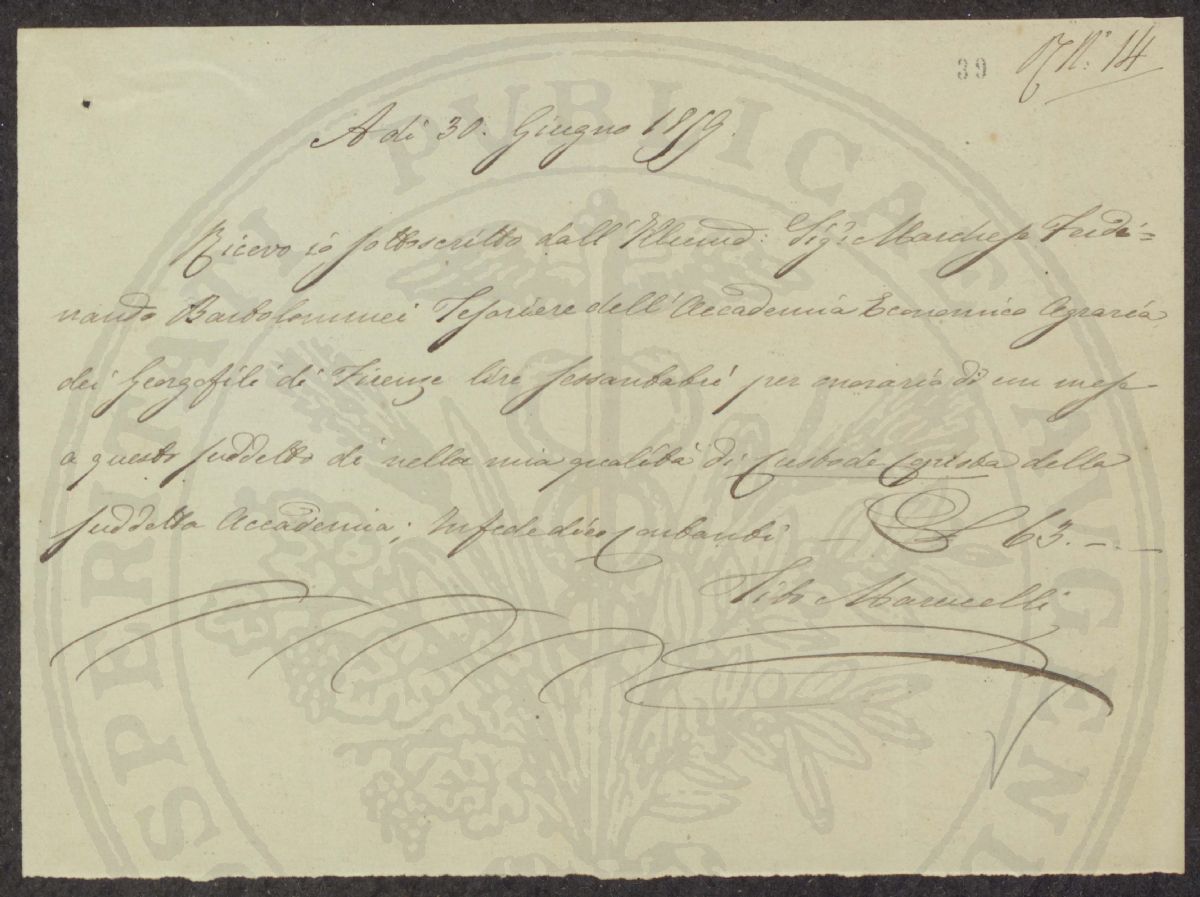 39 N.° 14
A dì 30. Giugno 1859.
Ricevo io sottoscritto dall' Illumo: Sig: Marchese Ferdi=
nando Bartolommei Tesoriere dell' Accademia Economico Agraria
dei Georgofili di Firenze lire sessantatrè per onorario di un mese
a questo suddetto dì nella mia qualità di Custode Copista della
suddetta Accademia; In fede dico Contanti — £ 63. — . —
Tito Marucelli
PROSPERITATI PUBLICAE AUGEN